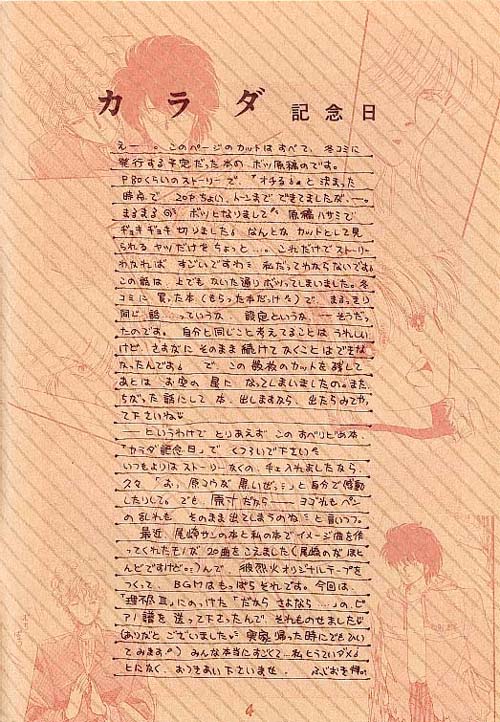 カラダ記念日
えー 。このページのカットはすべて、冬コミに
発行する予定だった本の ボツ原稿のです。
P80くらいのストーリーで、『オチる』と 決まった
時点で 20Pちょい、トーンまで できてましたが、ー。
まるまる ボツになりまして 原稿 ハサミで
ギョキギョキ 切りました なんとな カットとして見
られるヤツだけを ちょっと…。これだけで ストーリー
わかれば すごいですわ 私だってわからないです
この話は、上でも かいた通り ボツってしまいました。冬
コミに 買った本(もらった本だっけ)で、まるっきり
同じ話 …っていうか 設定というか ー そうだっ
たのです。 自分と同じこと考えてることは うれしい
けど、さすがに そのまま 続けてかくことはできな
なったんです で、この数枚のカットを残して
あとは お空の 星に なってしまいましたの。また
ちがった 話にして 本、出しますなら、出たらみてやっ
て下さいね
ーというわけで とりあえず このすべりどめ本、
「カラダ記念日」で くつろいで下さい
いつもよりは ストーリーなくの、チェ入れましたなら、
久々 「おっ、原コウが 黒いぜ。」と自分で感動
したりして。でも 原寸だからー ヨゴれも ペン
の乱れも そのまま出てしまうのね と言いつつ。
最近、尾崎サンの本と私の本で イメージ曲を作
ってくれたモノが 20曲をこえました(尾崎のがほと
んどですけど)んで 彼烈火オリジナルテープを
つくって、BGMはもっぱら それです。今回は、
にのっけた「だから さよなら……」の、ピ
アノ譜を 送って下さったんで、それものせました
(ありがとございました 実家 帰った時にでもひい
てみます) みんな本当にすごくて…私とうていダメ
とにかく、おつきあい下さいませ。
4